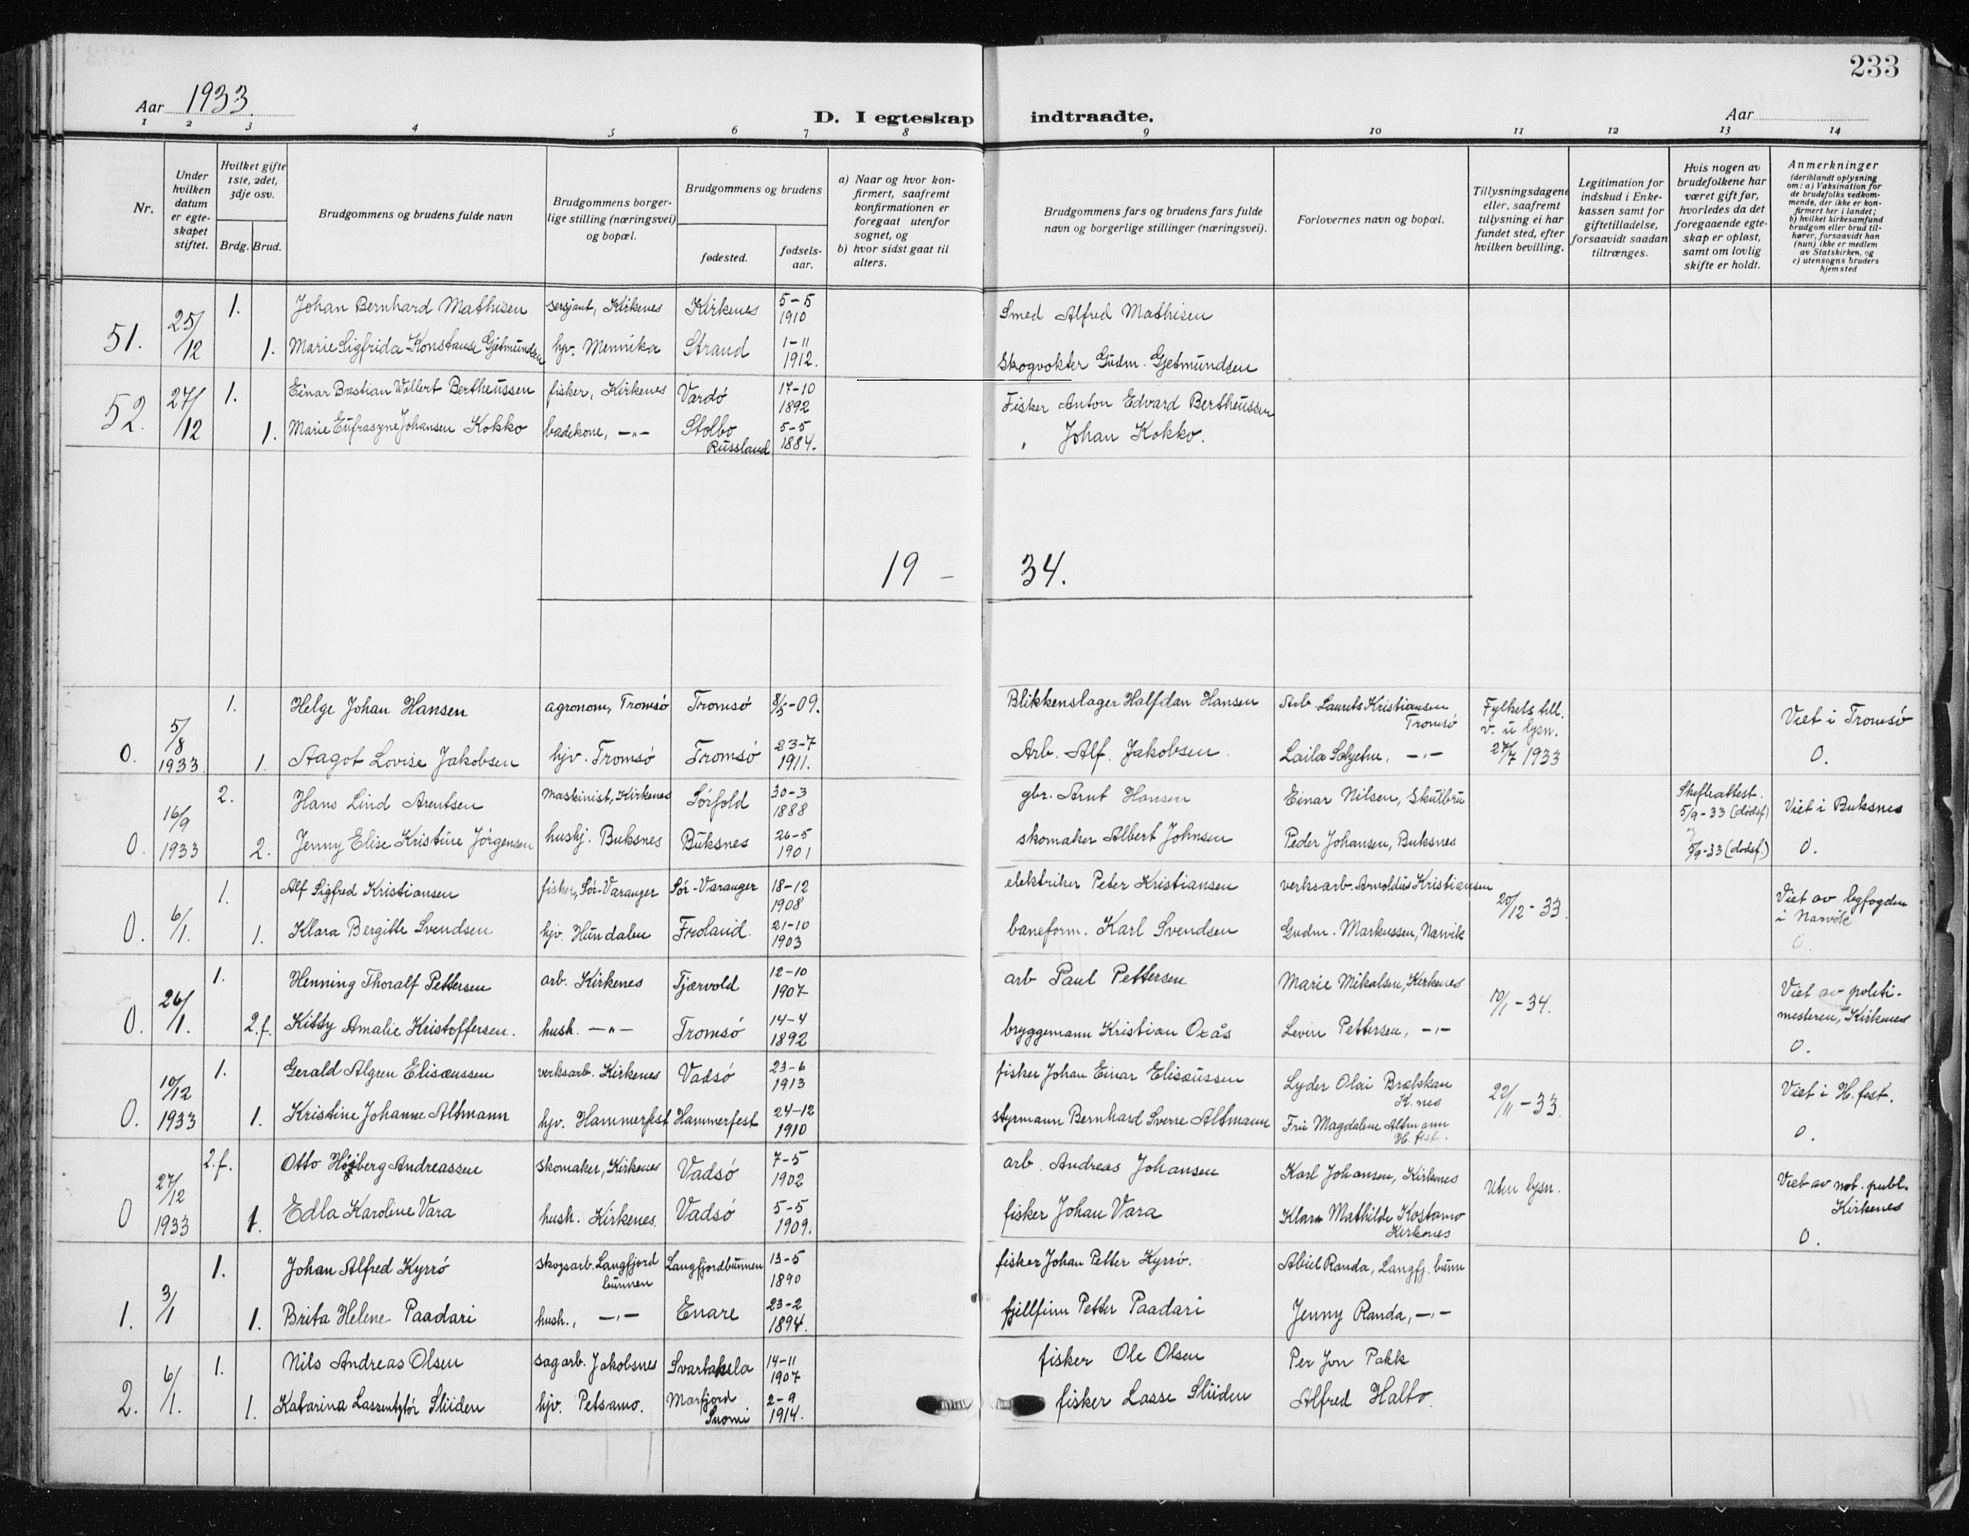 233
Aar 1933.
D. I egteskap indtraadte.
Aar
1 2 3 4 5 6 7 8 9 10 11 12 13 14
Nr.
Under hvilken datum er egteskapet stiftet.
Hvilket gifte 1ste, 2det, 3dje osv.
Brdg. Brud.
Brudgommens og brudens fulde navn
Brudgommens borgerlige stilling (næringsvei) og bopæl.
Brudgommens og brudens
fødested.
fødselsaar.
a) Naar og hvor konfirmert, saafremt konfirmationen er foregaat utenfor sognet, og
b) hvor sidst gaat til alters.
Brudgommens fars og brudens fars fulde navn og borgerlige stillinger (næringsvei).
Forlovernes navn og bopæl.
Tillysningsdagene eller, saafremt tillysning ei har fundet sted, efter hvilken bevilling.
Legitimation for indskud i Enkekassen samt for giftetilladelse, forsaavidt saadan tiltrænges.
Hvis nogen av brudefolkene har været gift før, hvorledes da det foregaaende egteskap er opløst, samt om lovlig skifte er holdt.
Anmerkninger (deriblandt oplysning om: a) Vaksination for de brudefolks vedkommende, der ikke er konfirmert her i landet; b) hvilket kirkesamfund brudgom eller brud tilhører, forsaavidt han (hun) ikke er medlem av Statskirken, og c) utensogns bruders hjemsted
51. 25/12 1. Johan Bernhard Mathisen sersjant, Kirkenes Kirkenes 5-5 1910 Smed Alfred Mathisen
1. Marie Sigfrida Konstanse Gjetmundsen hjv. Mennika Strand 1-11 1912. Skogvokter Gudm. Gjetmundsen
52. 27/12 1. Einar Bastian Wollert Bertheussen fisker, Kirkenes Vardø 17-10 1892 Fisker Anton Edvard Bertheussen
1. Marie Eufrasyne Johansen Kokko badekone, -"- Stolbo Russland 5-5 1884. " Johan Kokko.
19 - 34.
0. 5/8 1933 1. Helge Johan Hansen agronom, Tromsø Tromsø 8/5-09. Blikkenslager Halfdan Hansen Arb. Laurits Kristiansen Tromsø Fylkets till. v. u lysn. 27/7 1933 Viet i Tromsø
1. Aagot Lovise Jakobsen hjv. Tromsø Tromsø 23-7 1911. Arb. Alf. Jakobsen. Laila -"- 0.
0. 16/9 1933 2. Hans Lind Arentsen Maskinist, Kirkenes Sørfold 30-3 1888 gbr. Arnt Hansen Einar Nilsen, Skulbru Skifteattest. 5/9-33 (dødsf) Viet i Buksnes
2. Jenny Elise Kristine Jørgensen huskj. Buksnes Buksnes 26-5 1901 skomaker Albert Johnsen Peder Johansen, Buksnes og 5/9-33 (dødsf.) 0.
0. 6/1. 1. Alf Sigfred Kristiansen fisker, Sør-Varanger Sør-Varanger 18-12 1908 elektriker Peter Kristiansen verksarb. Arnoldus Kristiansen 20/12-33. Viet av byfogden i Narvik
1. Klara Bergitte Svendsen hjv. Hundalen Froland. 21-10 1903 baneform. Karl Svendsen Gudm. Markussen, Narvik 0.
0. 26/1. 1. Henning Thoralf Pettersen arb. Kirkenes Tjærvold 12-10 1907 arb Paul Pettersen Marie Mikalsen, Kirkenes 10/1-34. Viet av politimesteren, Kirkenes
2.f. Kitty Amalie Kristoffersen. hush. -"- Tromsø 14-4 1892 bryggemann Kristian Oxås Levin Pettersen, -"- 0.
0. 10/12 1933 1. Gerald Algren Elisæussen verksarb. Kirkenes Vadsø 23-6 1913 fisker Johan Einar Elisæussen Lyder Olai Bratskan K.nes 22/11-33. Viet i H.fest.
1. Kristine Johanne Altmann hjv. Hammerfest Hammerfest 24-12 1910 styrmann Bernhard Sverre Altmann Fru Magdalene Altmann H. fest. 0.
0 27/12 1933 2.f. Otto Højberg Andreassen skomaker, Kirkenes Vadsø 7-5 1902 arb. Andreas Johansen Karl Johansen, Kirkenes Uten lysn. Viet av not. publ. Kirkenes
1. Edla Karoline Vara hush. Kirkenes. Vadsø 5-5 1909. fisker Johan Vara Klara Mathilde Kostamo Kirkenes 0.
1. 3/1 1. Johan Alfred Kyrrö skogsarb. Langfjordbunnen Langfjordbunnen 13-5 1890 fisker Johan Petter Kyrrö. Abiel Randa, Langfj. bunn
1. Brita Helene Paadari hush., -"- Enare 23-2 1894. fjellfinn Petter Paadari Jenny Randa, -"-
2. 6/1. 1. Nils Andreas Olsen sagarb. Jakobsnes Svartaksla 14-11 1907 fisker Ole Olsen Per Jon Pakk
1. Katarina Lassentytör Sliiden hjv. Petsamo. Marfjord Suomi 2-9 1914. fisker Lasse Sliiden Alfred Halto.